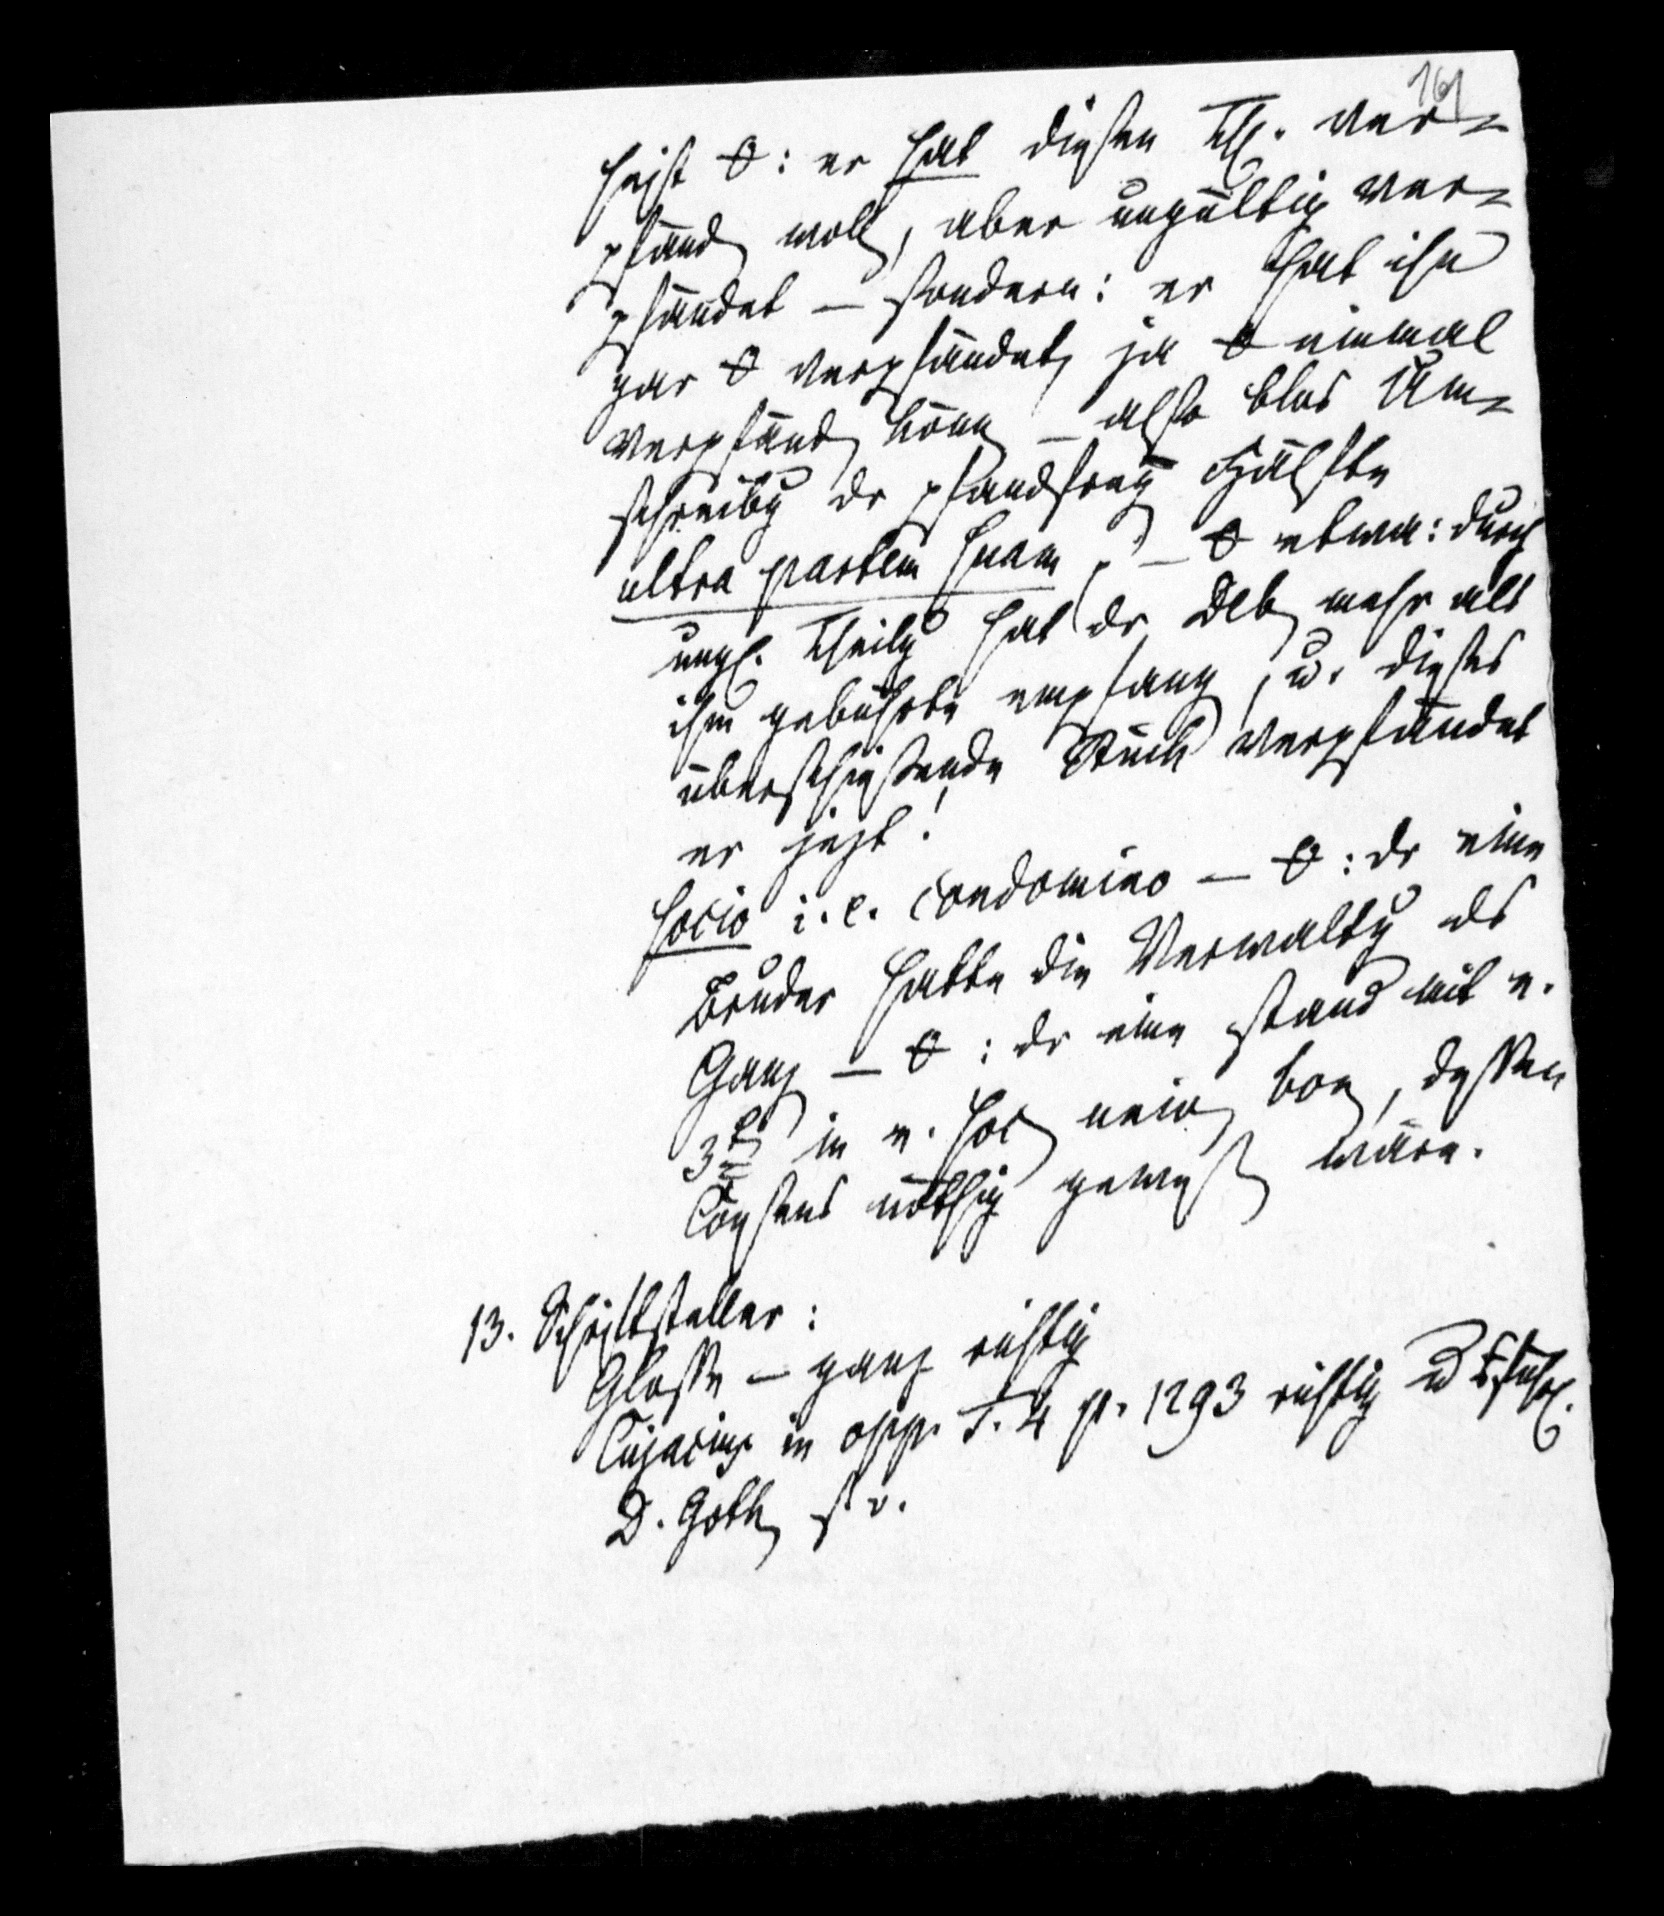 161
heißt θ: er hat diesen Th. ver-
pfänd woll, aber ungültig ver-
pfändet – sondern: er hat ihn
gar θ verpfändet, ja θ einmal
verpfänd könn – also blos Um-
schreibg dr pfandfrey Hälfte
ultra partem suam, – θ etwa: durch
ungl. Theilg hat dr Deb mehr als
ihm gebührte empfang, u. dieses
überschießende Stück verpfändet
er jezt!
socio i. e. condomino – θ: dr eine
Bruder hatte die Verwaltg ds
Ganz – θ: dr eine stand mit e.
3t in e. soc bon, dessen
Consens nöthig geweß wäre.
13. Schriftsteller:
Glosse – ganz richtig
Cujacius in opp. T. 4 p. 1293 richtig u
D. Goth s. v.